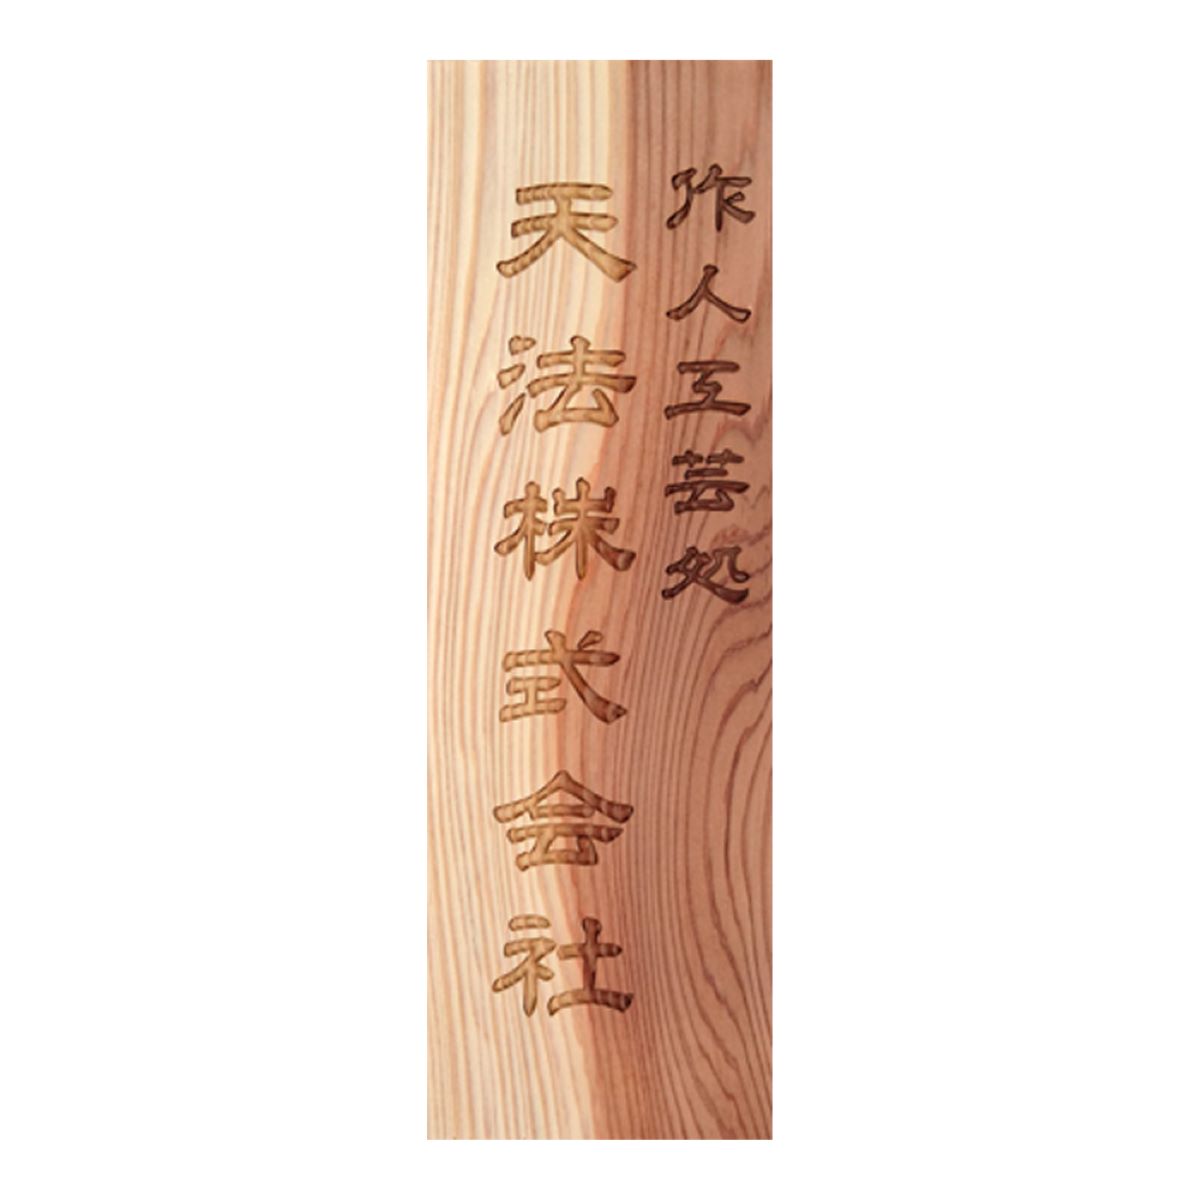 作人工芸処
天法株式会社